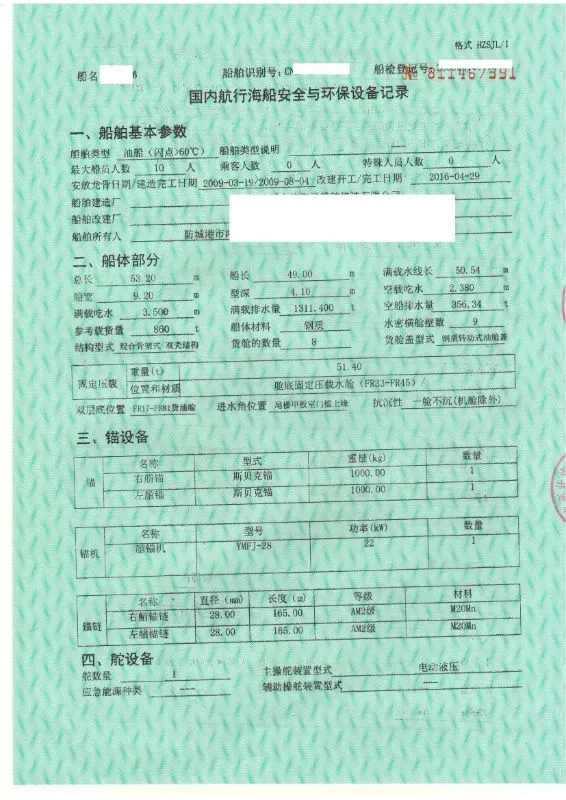 格式 HZSJL/I
船名 6 船舶识别号: CN 船检登记号:
№ 811467991
国内航行海船安全与环保设备记录
一、船舶基本参数
船舶类型 油船（闪点>60℃） 船舶类型说明 ---
最大船员人数 10 人 乘客人数 0 人 特殊人员人数 0 人
安放龙骨日期/建造完工日期 2009-03-19/2009-08-04 改建开工/完工日期 2016-04-29
船舶建造厂
船舶改建厂
船舶所有人 防城港市
二、船体部分
总长 53.20 m 船长 49.00 m 满载水线长 50.54 m
船宽 9.20 m 型深 4.10 m 空载吃水 2.380 m
满载吃水 3.500 m 满载排水量 1311.400 t 空船排水量 356.34 t
参考载货量 860 t 船体材料 钢质 水密横舱壁数 9
结构型式 混合骨架式 双壳结构 货舱的数量 8 货舱盖型式 钢质转动式油舱盖
固定压载 重量(t) 51.40
位置和材质 舱底固定压载水舱 (FR33-FR45) /
双层底位置 FR17-FR81货油舱 进水角位置 尾楼甲板室门槛上缘 抗沉性 一舱不沉(机舱除外)
三、锚设备
锚 名称 型式 重量(kg) 数量
右艏锚 斯贝克锚 1000.00 1
左艏锚 斯贝克锚 1000.00 1
锚机 名称 型号 功率(kW) 数量
艏锚机 YMFJ-28 22 1
锚链 名称 直径 (mm) 长度 (m) 等级 材料
右艏锚链 28.00 165.00 AM2级 M20Mn
左艏锚链 28.00 165.00 AM2级 M20Mn
四、舵设备
舵数量 1 主操舵装置型式 电动液压
应急能源种类 --- 辅助操舵装置型式 ---